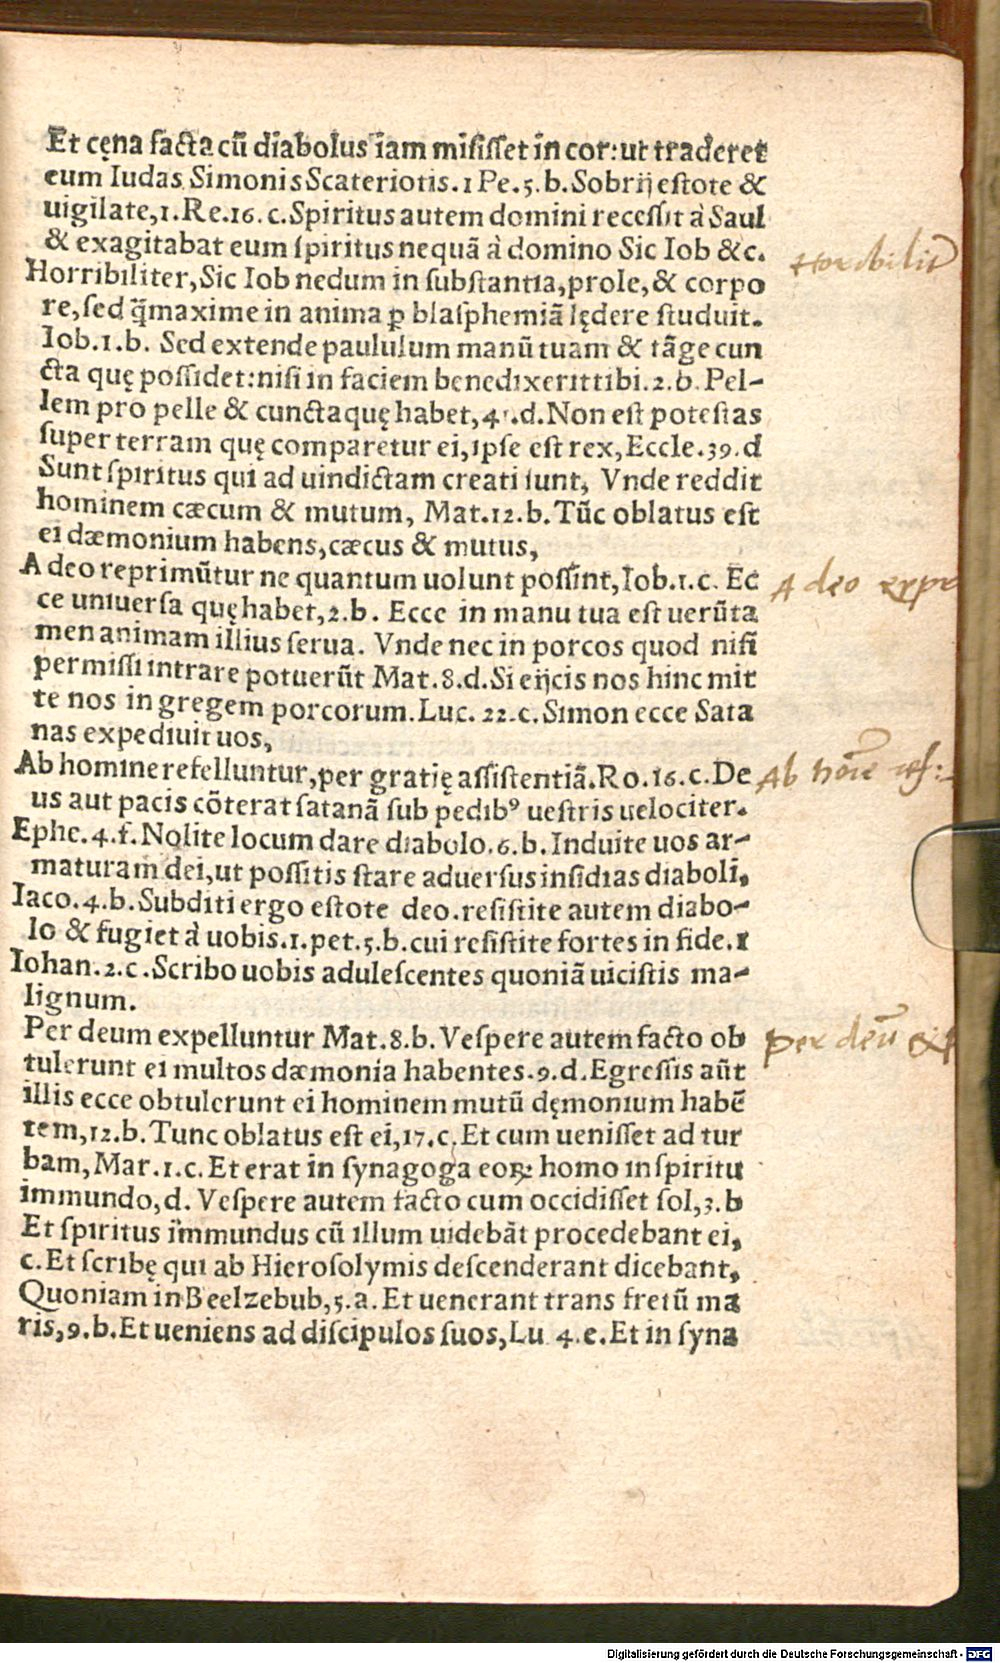 Et cęna facta cū diabolus iam misisset in cor: ut traderet
eum Iudas Simonis Scateriotis. 1 Pe. 5. b. Sobrij estote &
uigilate, 1. Re. 16. c. Spiritus autem domini recessit à Saul
& exagitabat eum spiritus nequā à domino Sic Iob & c.
Horribiliter, Sic Iob nedum in substantia, prole, & corpo
re, sed q̄maxime in anima ꝑ blasphemiā lędere studuit.
Iob. 1. b. Sed extende paululum manū tuam & tāge cun
cta quę possidet: nisi in faciem benedixerit tibi. 2. b. Pel-
lem pro pelle & cuncta quę habet, 41. d. Non est potestas
super terram quę comparetur ei, ipse est rex, Eccle. 39. d
Sunt spiritus qui ad uindictam creati sunt, Vnde reddit
hominem cæcum & mutum, Mat. 12. b. Tūc oblatus est
ei dæmonium habens, cæcus & mutus,
A deo reprimūtur ne quantum uolunt possint, Iob. 1. c. Ec
ce uniuersa quę habet, 2. b. Ecce in manu tua est uerūta
men animam illius serua. Vnde nec in porcos quod nisi
permissi intrare potuerūt Mat. 8. d. Si eijcis nos hinc mit
te nos in gregem porcorum. Luc. 22. c. Simon ecce Sata
nas expediuit uos,
Ab homine refelluntur, per gratię assistentiā. Ro. 16. c. De
us aut pacis cōterat satanā sub pedibꝰ uestris uelociter.
Ephe. 4. f. Nolite locum dare diabolo. 6. b. Induite uos ar-
maturam dei, ut possitis stare aduersus insidias diaboli,
Iaco. 4. b. Subditi ergo estote deo. resistite autem diabo-
lo & fugiet à uobis. 1. pet. 5. b. cui resistite fortes in fide. 1
Iohan. 2. c. Scribo uobis adulescentes quoniā uicistis ma-
lignum.
Per deum expelluntur Mat. 8. b. Vespere autem facto ob
tulerunt ei multos dæmonia habentes. 9. d. Egressis aūt
illis ecce obtulerunt ei hominem mutū dęmonium habē
tem, 12. b. Tunc oblatus est ei, 17. c. Et cum uenisset ad tur
bam, Mar. 1. c. Et erat in synagoga eoꝝ homo in spiritu
immundo, d. Vespere autem facto cum occidisset sol, 3. b
Et spiritus immundus cū illum uidebāt procedebant ei,
c. Et scribę qui ab Hierosolymis descenderant dicebant,
Quoniam in Beelzebub, 5. a. Et uenerant trans fretū ma
ris, 9. b. Et ueniens ad discipulos suos, Lu 4. e. Et in syna
Horribilit̄
A deo repr
Ab hōie ref:
per deū exp
Digitalisierung gefördert durch die Deutsche Forschungsgemeinschaft - DFG